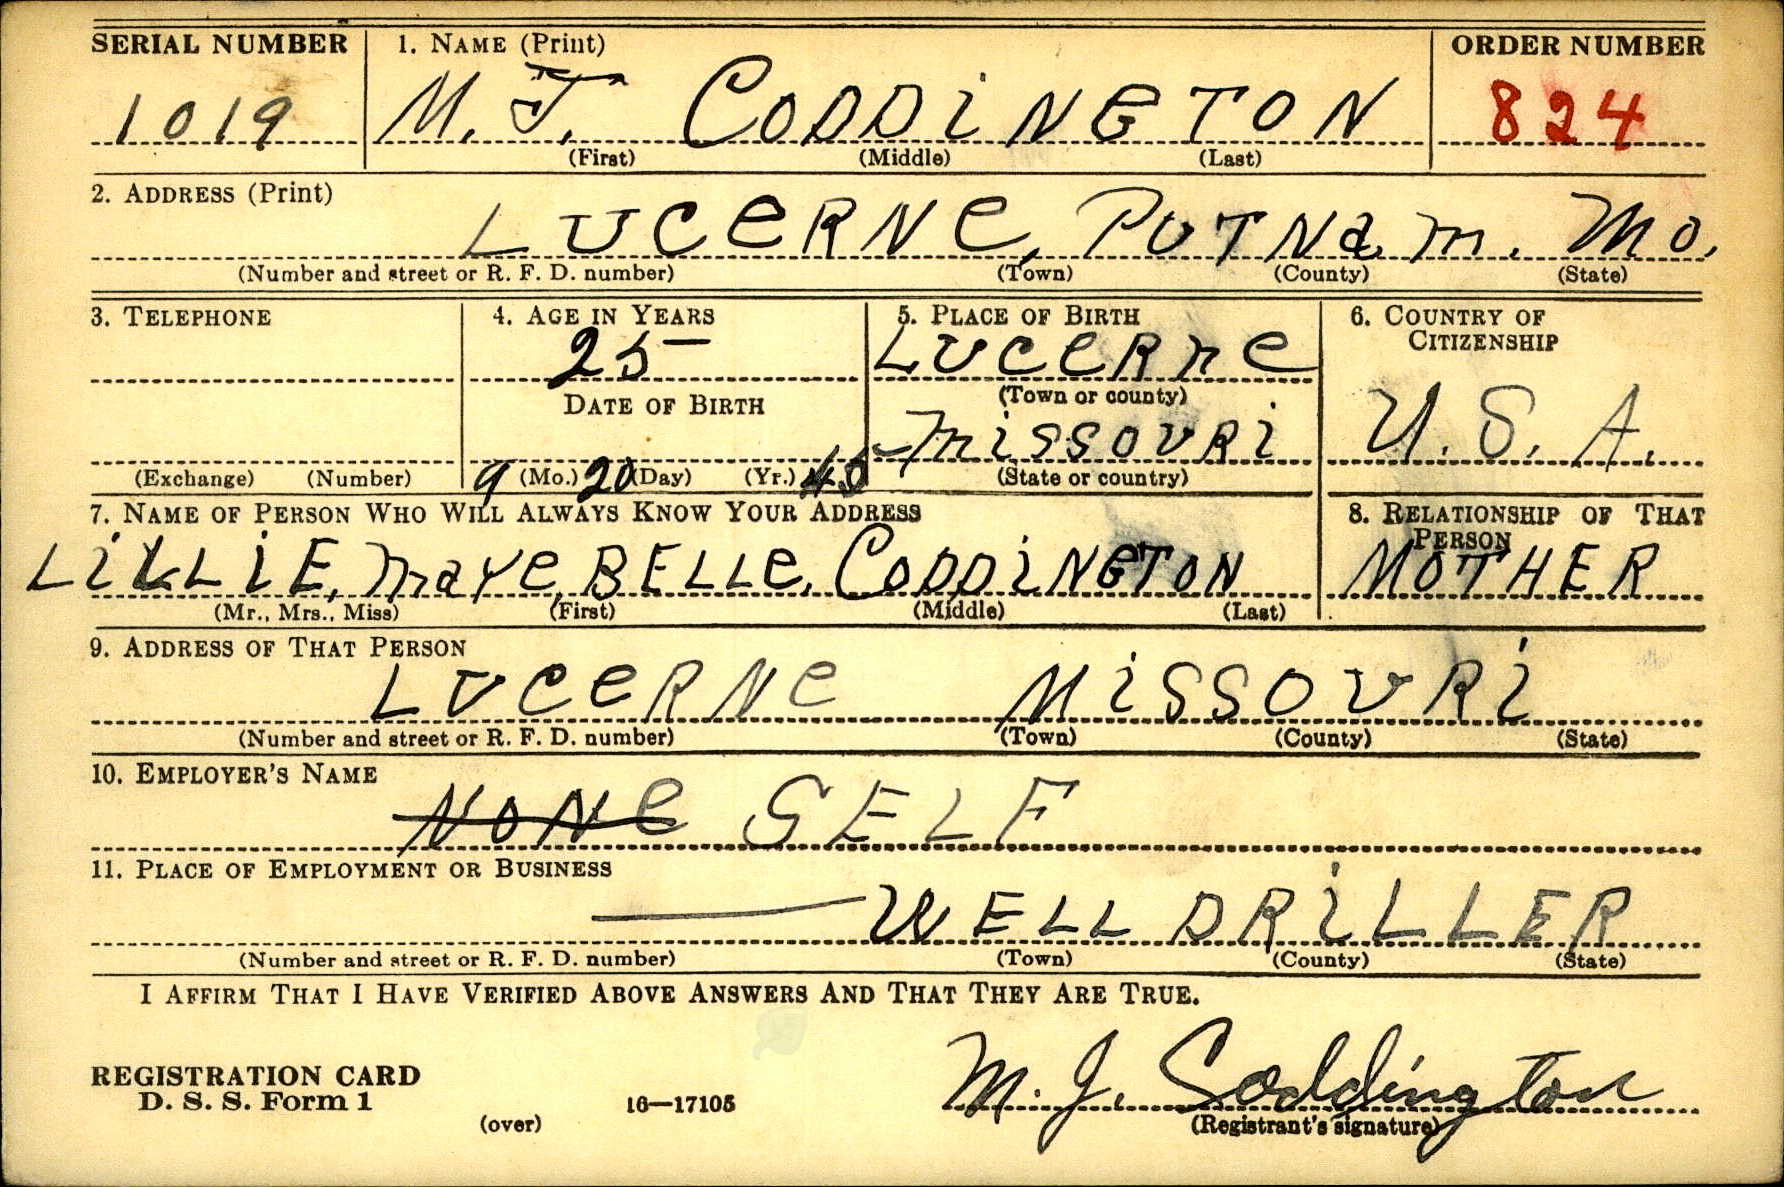 SERIAL NUMBER 1. NAME (Print) ORDER NUMBER
1019 M. J. CODDINGTON 824
(First) (Middle) (Last)
2. ADDRESS (Print)
LUCERNE, PUTNAM. MO.
(Number and street or R. F. D. number) (Town) (County) (State)
3. TELEPHONE 4. AGE IN YEARS 5. PLACE OF BIRTH 6. COUNTRY OF CITIZENSHIP
25 LUCERNE
DATE OF BIRTH (Town or county)
MISSOURI U. S. A.
(Exchange) (Number) 9 (Mo.) 20 (Day) (Yr.) (State or country)
7. NAME OF PERSON WHO WILL ALWAYS KNOW YOUR ADDRESS 8. RELATIONSHIP OF THAT PERSON
LILLIE, MAYE, BELLE, CODDINGTON MOTHER
(Mr., Mrs., Miss) (First) (Middle) (Last)
9. ADDRESS OF THAT PERSON
LUCERNE MISSOURI
(Number and street or R. F. D. number) (Town) (County) (State)
10. EMPLOYER'S NAME
NONE SELF
11. PLACE OF EMPLOYMENT OR BUSINESS
WELL DRILLER
(Number and street or R. F. D. number) (Town) (County) (State)
I AFFIRM THAT I HAVE VERIFIED ABOVE ANSWERS AND THAT THEY ARE TRUE.
REGISTRATION CARD
D. S. S. Form 1 16—17105 M. J. Coddington
(over) (Registrant's signature)